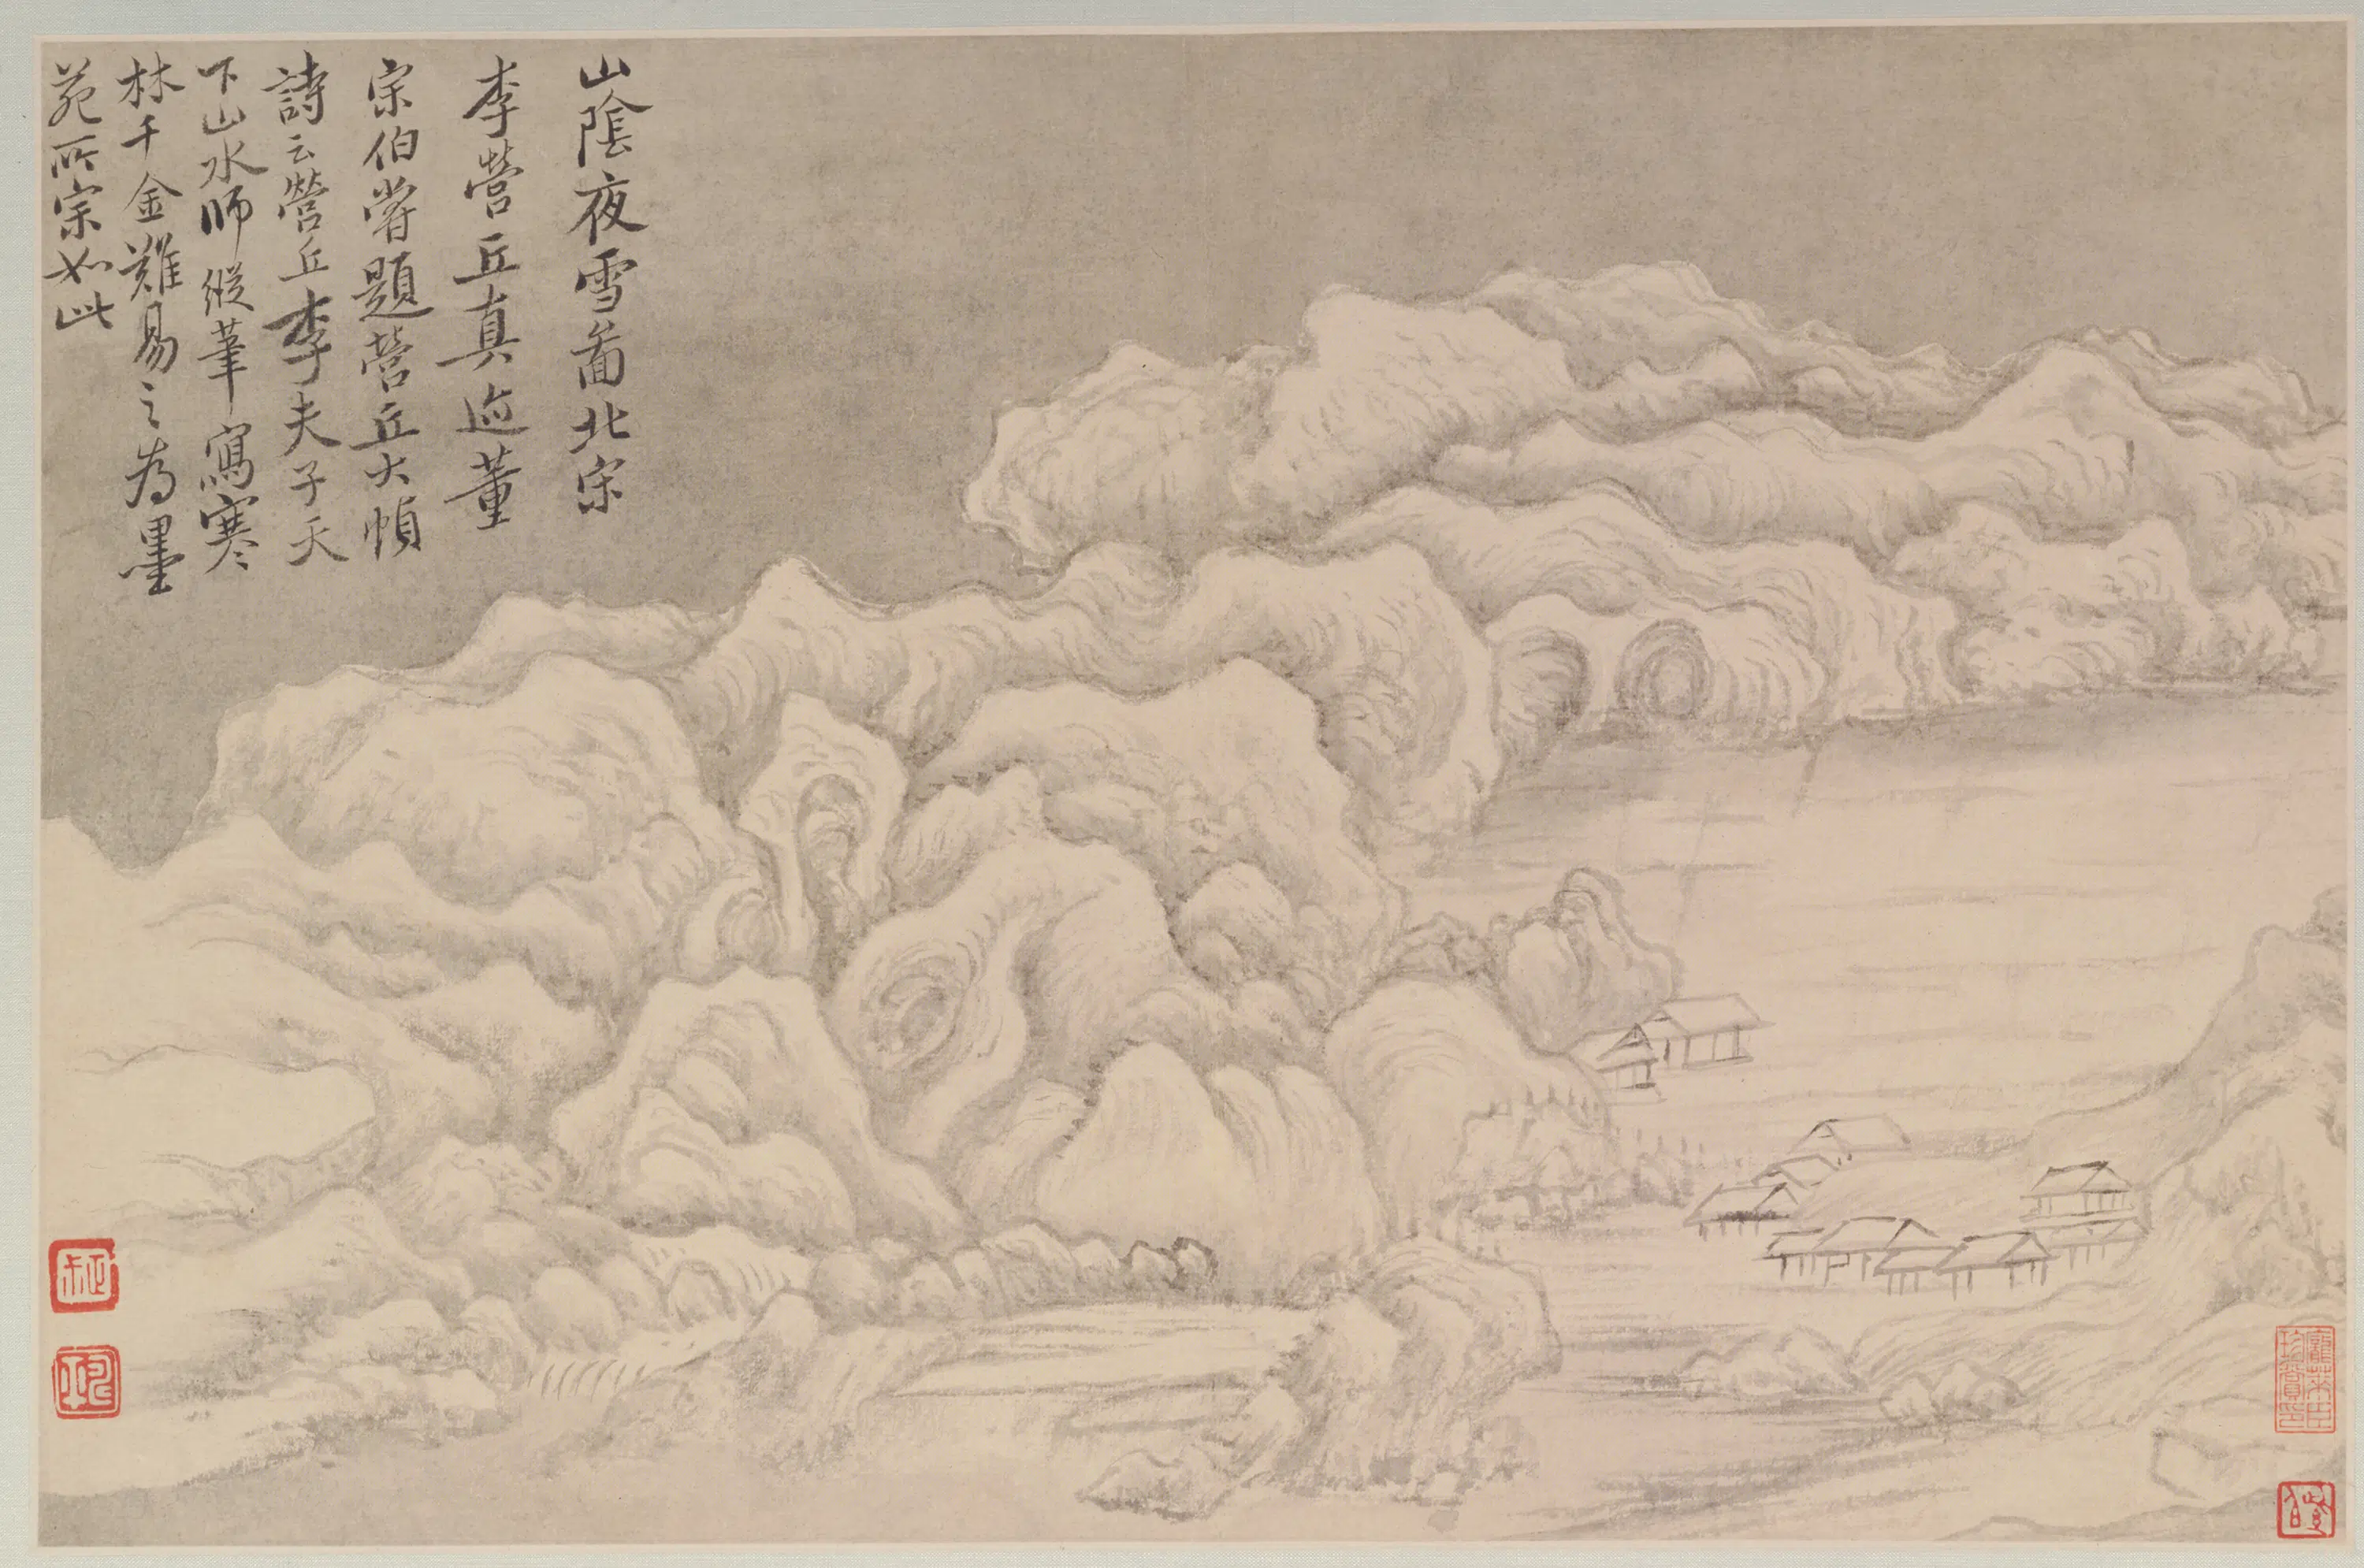 山陰夜雪啚北宋
李營丘真迹董
宗伯嘗題營丘大幀
詩云營丘李夫子天
下山水師縱筆寫寒
林千金難易之為墨
苑所宗如此
龐萊臣
珍賞印